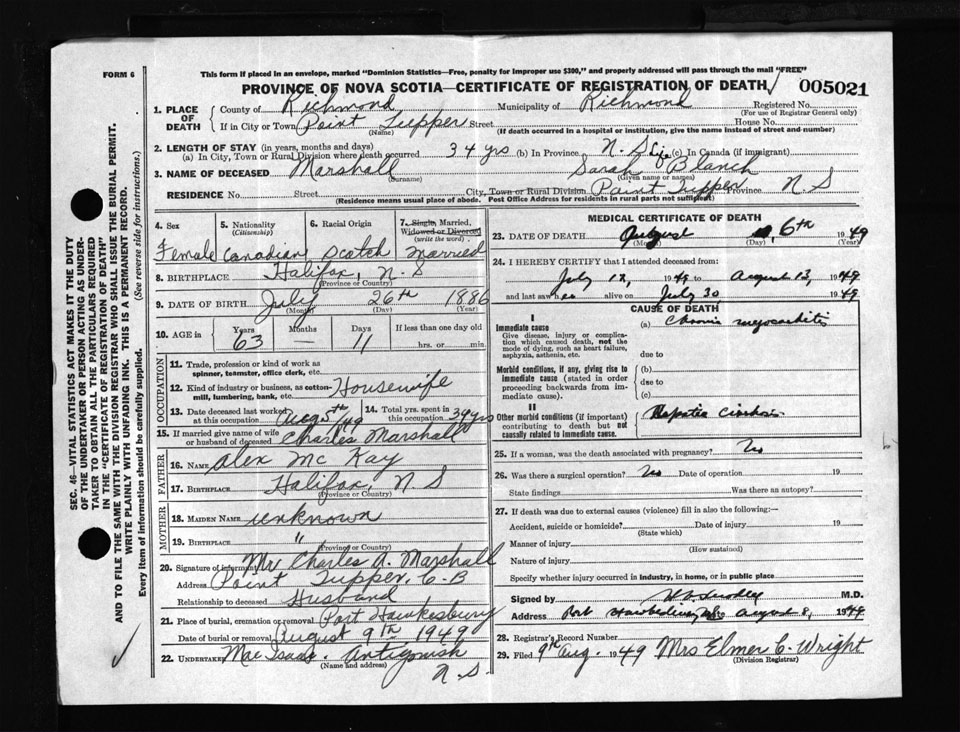 FORM 6
This form if placed in an envelope, marked "Dominion Statistics—Free, penalty for improper use $300," and properly addressed will pass through the mail "FREE"
PROVINCE OF NOVA SCOTIA—CERTIFICATE OF REGISTRATION OF DEATH
005021
1. PLACE OF DEATH { County of Richmond Municipality of Richmond Registered No.
(For use of Registrar General only)
If in City or Town Point Tupper Street House No.
(Name) (If death occurred in a hospital or institution, give the name instead of street and number)
2. LENGTH OF STAY (in years, months and days)
(a) In City, Town or Rural Division where death occurred 34 yrs (b) In Province N. S Life (c) In Canada (if immigrant)
3. NAME OF DECEASED Marshall Sarah Blanch
(Surname) (Given name or names)
RESIDENCE No. Street City, Town or Rural Division Point Tupper Province N S
(Residence means usual place of abode. Post Office Address for residents in rural parts not sufficient)
4. Sex Female
5. Nationality (Citizenship) Canadian
6. Racial Origin Scotch
7. Single, Married, Widowed or Divorced (write the word) Married
8. BIRTHPLACE Halifax, N. S
(Province or Country)
9. DATE OF BIRTH July 26th 1886
(Month) (Day) (Year)
10. AGE in Years 63 Months — Days 11 If less than one day old hrs. or min.
OCCUPATION
11. Trade, profession or kind of work as spinner, teamster, office clerk, etc.
12. Kind of industry or business, as cotton-mill, lumbering, bank, etc. Housewife
13. Date deceased last worked at this occupation Aug 5th/49
14. Total yrs. spent in this occupation 34 yrs
15. If married give name of wife or husband of deceased Charles Marshall
FATHER
16. NAME Alex Mc Kay
17. BIRTHPLACE Halifax, N. S
(Province or Country)
MOTHER
18. MAIDEN NAME unknown
19. BIRTHPLACE "
(Province or Country)
20. Signature of informant Mr Charles A. Marshall
Address Point Tupper, C-B
Relationship to deceased Husband
21. Place of burial, cremation or removal Port Hawkesbury
Date of burial or removal August 9th 1949
22. UNDERTAKER Mac Isaac. Antigonish
(Name and address)
N. S.
MEDICAL CERTIFICATE OF DEATH
23. DATE OF DEATH August 6th 1949
(Month) (Day) (Year)
24. I HEREBY CERTIFY that I attended deceased from:
July 12, 1949 to August 13, 1949
and last saw her alive on July 30 1949
CAUSE OF DEATH
I
Immediate cause (a) Chronic myocarditis
Give disease, injury or complication which caused death, not the mode of dying, such as heart failure, asphyxia, asthenia, etc.
due to
Morbid conditions, if any, giving rise to immediate cause (stated in order proceeding backwards from immediate cause).
(b)
due to
(c)
II
Other morbid conditions (if important) contributing to death but not causally related to immediate cause.
Hepatic Cirrhosis
25. If a woman, was the death associated with pregnancy? No
26. Was there a surgical operation? No Date of operation 19
State findings Was there an autopsy?
27. If death was due to external causes (violence) fill in also the following:—
Accident, suicide or homicide? Date of injury 19
(State which)
Manner of injury
(How sustained)
Nature of injury
Specify whether injury occurred in industry, in home, or in public place
Signed by M.D.
Address Port Hawkesbury Date August 8, 1949
28. Registrar's Record Number
29. Filed 9th Aug. 1949 Mrs Elmer C. Wright
(Division Registrar)
SEC. 46—VITAL STATISTICS ACT MAKES IT THE DUTY
OF THE UNDERTAKER OR PERSON ACTING AS UNDERTAKER TO OBTAIN ALL THE PARTICULARS REQUIRED
IN THE "CERTIFICATE OF REGISTRATION OF DEATH"
AND TO FILE THE SAME WITH THE DIVISION REGISTRAR WHO SHALL ISSUE THE BURIAL PERMIT.
WRITE PLAINLY WITH UNFADING INK. THIS IS A PERMANENT RECORD.
Every item of information should be carefully supplied. (See reverse side for instructions.)